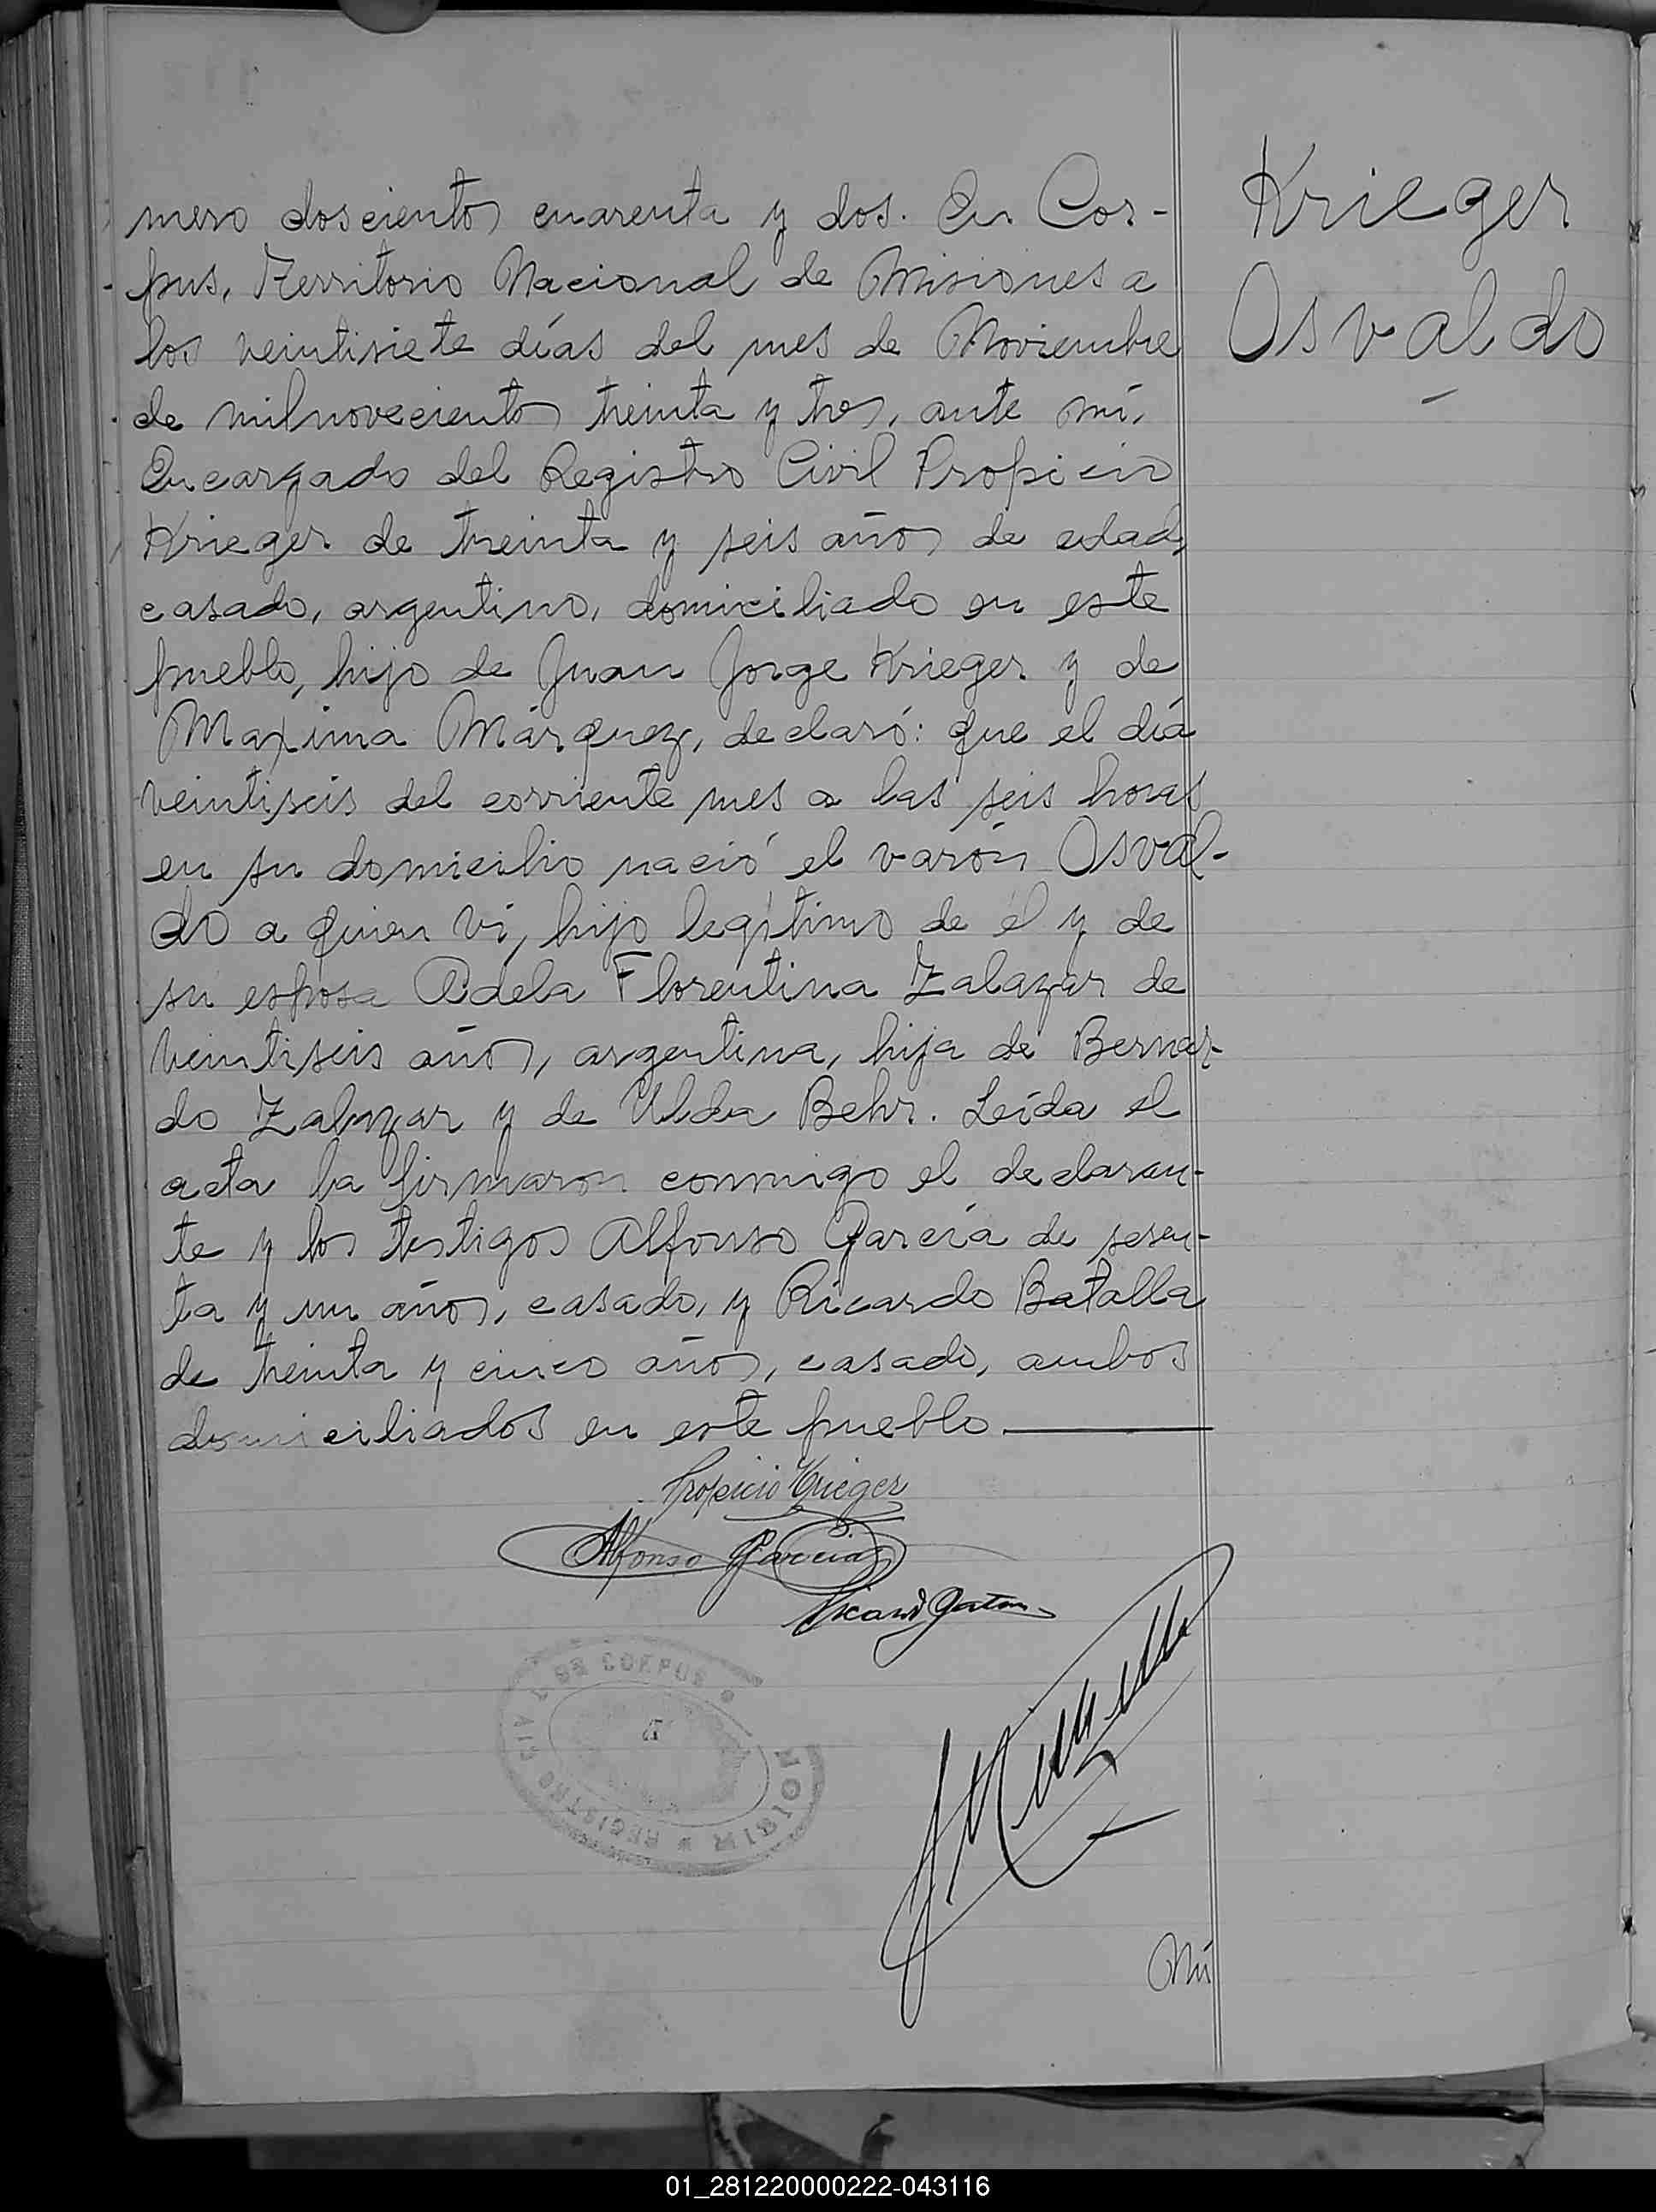 Krieger
Osvaldo
mero doscientos cuarenta y dos. En Cor-
pus, Territorio Nacional de Misiones a
los veintisiete días del mes de Noviembre
de milnovecientos treinta y tres, ante mí,
Encargado del Registro Civil Propicio
Krieger de treinta y seis años de edad,
casado, argentino, domiciliado en este
pueblo, hijo de Juan Jorge Krieger y de
Maxima Márquez, declaró: que el día
veintiseis del corriente mes a las seis horas
en su domicilio nació el varón Osval-
do a quien vi, hijo legítimo de él y de
su esposa Adela Florentina Zalazar de
veintiseis años, argentina, hija de Bernar-
do Zalazar y de Ulda Behr. Leída el
acta la firmaron conmigo el declaran-
te y los testigos Alfonso García de sesen-
ta y un años, casado, y Ricardo Batalla
de treinta y cinco años, casado, ambos
domiciliados en este pueblo
Propicio Krieger
Alfonso Garcia
REGISTRO CIVIL DE CORPUS
MISION
Nú
01_281220000222-043116